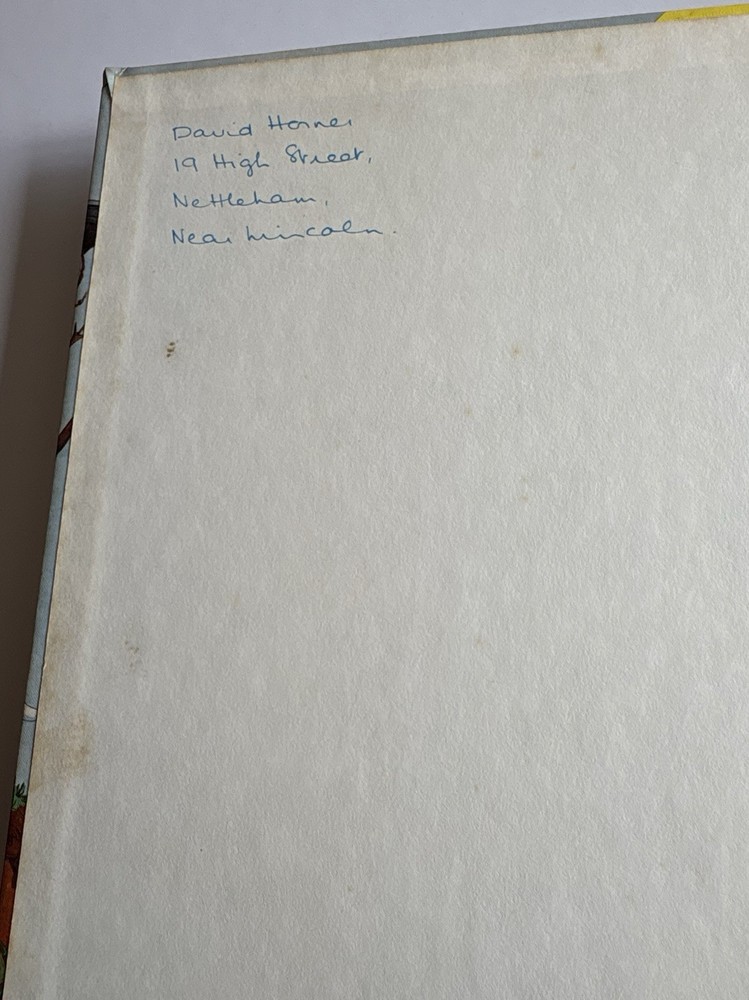 David Horner
19 High Street,
Nettleham,
Near Lincoln.